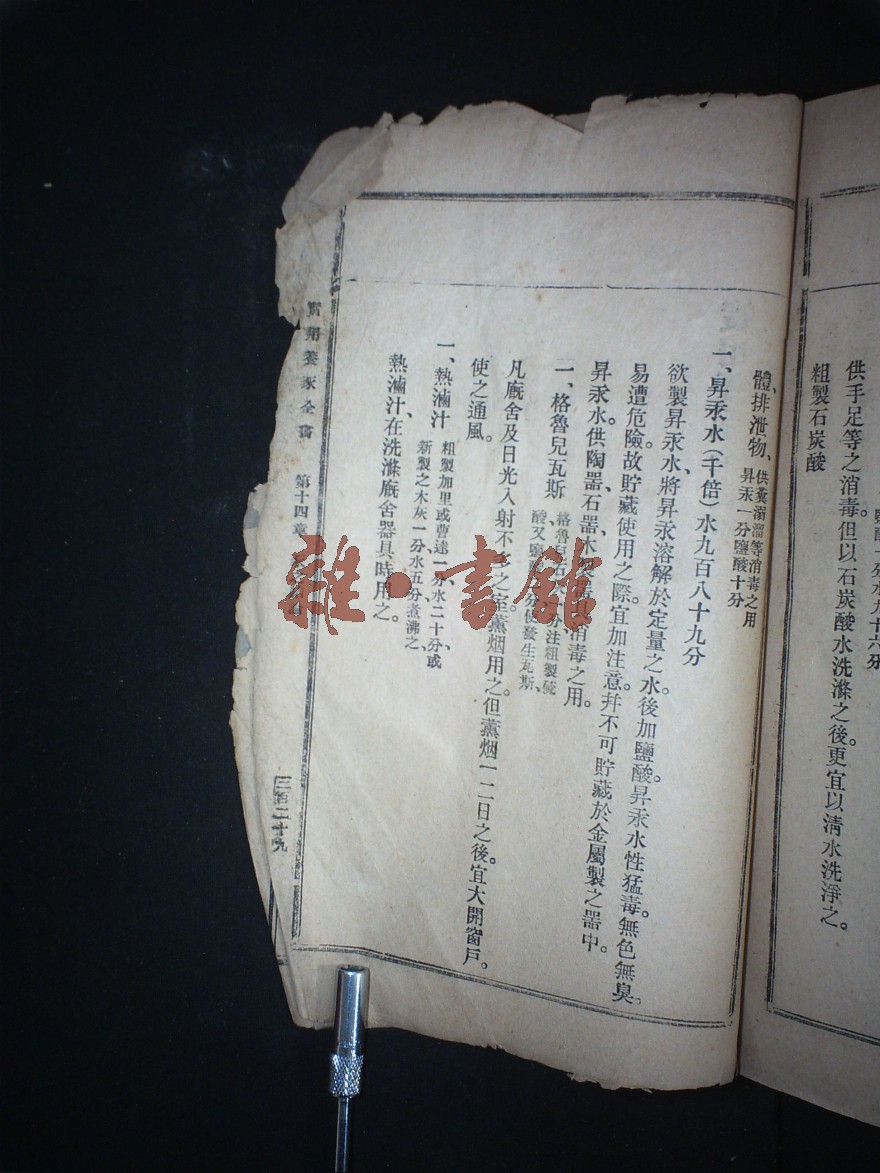 鹽酸一分水九十六分
供手足等之消毒。但以石炭酸水洗滌之後。更宜以淸水洗淨之。
粗製石炭酸
體、排泄物、供糞溺溜等消毒之用
昇汞一分鹽酸十分
一、昇汞水(千倍)水九百八十九分
欲製昇汞水、將昇汞溶解於定量之水。後加鹽酸。昇汞水性猛毒。無色無臭。
易遭危險。故貯藏使用之際。宜加注意。幷不可貯藏於金屬製之器中。
昇汞水。供陶器、石器、木製器具消毒之用。
一、格魯兒瓦斯 格魯兒石 一分注粗製硫
酸又鹽酸 分使發生瓦斯、
凡廐舍及日光入射不 之室。薰烟用之。但薰烟一二日之後。宜大開窗戶。
使之通風。
一、熱滷汁 粗製加里或曹達一分水二十分或
新製之木灰一分水五分煮沸之、
熱滷汁、在洗滌廐舍器具時用之。
實用養豕全書 第十四章
三百二十九
雜·書館